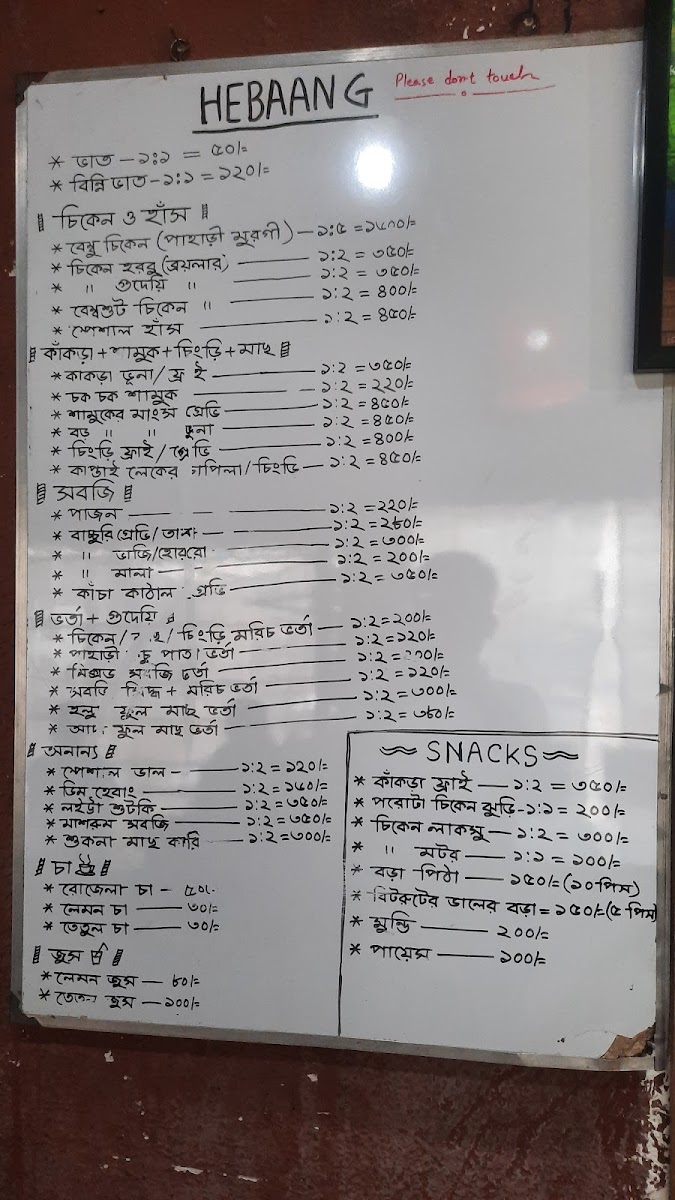 HEBAANG
Please don't touch
* ভাত - ১:১ = ৫০/=
* বিন্নি ভাত - ১:১ = ১২০/=
চিকেন ও হাঁস
* বেম্বু চিকেন (পাহাড়ী মুরগী) — ১:৫ =
* চিকেন হরবু (ব্রয়লার) — ১:২ = ৩৫০/=
* " গুদেয়ি " — ১:২ = ৩৫০/=
* বেম্বুশুট চিকেন " — ১:২ = ৪০০/=
* স্পেশাল হাঁস — ১:২ = ৪৫০/=
কাঁকড়া + শামুক + চিংড়ি + মাছ
* কাকড়া ভূনা / ফ্রাই — ১:২ = ৩৫০/=
* চক চক শামুক — ১:২ = ২২০/=
* শামুকের মাংস গ্রেভি — ১:২ = ৪৫০/=
* বড় " " ভূনা — ১:২ = ৪৫০/=
* চিংড়ি ফ্রাই / গ্রেভি — ১:২ = ৪০০/=
* কাপ্তাই লেকের চাপিলা / চিংড়ি — ১:২ = ৪৫০/=
সবজি
* পাজন — ১:২ = ২২০/=
* বাচ্চুরি গ্রেভি / — ১:২ = ২৮০/=
* " ভাজি / হোরবো — ১:২ = ৩০০/=
* " মালা — ১:২ = ২০০/=
* কাঁচা কাঠাল গ্রেভি — ১:২ = ৩৫০/=
ভর্তা + গুদেয়ি
* চিকেন / / চিংড়ি মরিচ ভর্তা — ১:২ = ২০০/=
* পাহাড়ী কচু পাতা ভর্তা — ১:২ = ১২০/=
* মিক্সড সবজি ভর্তা — ১:২ =
* সবজি সিদ্ধ + মরিচ ভর্তা — ১:২ = ১২০/=
* হলুদ ফুল মাছ ভর্তা — ১:২ = ৩০০/=
* ফুল মাছ ভর্তা — ১:২ = ৩৮০/=
অনান্য
* স্পেশাল ডাল - — ১:২ = ১২০/=
* ডিম হেবাং — ১:২ = ১৮০/=
* লইট্টা শুটকি — ১:২ = ৩৫০/=
* মাশরুম সবজি — ১:২ = ৩৫০/=
* শুকনা মাছ কারি — ১:২ = ৩০০/=
চা
* রোজেলা চা — ৫০/-
* লেমন চা — ৩০/=
* তেতুল চা — ৩০/=
জুস
* লেমন জুস — ৮০/=
* তেতুল জুস — ১০০/=
SNACKS
* কাঁকড়া ফ্রাই — ১:২ = ৩৫০/=
* পরোটা চিকেন ঝুড়ি - ১:১ = ২০০/=
* চিকেন লাকসু — ১:২ = ৩০০/=
* " মটর — ১:১ = ১০০/=
* বড়া পিঠা — ১৫০/= (১০ পিস)
* বিটরুটের ডালের বড়া = ১৫০/= (৫ পিস)
* মুন্ডি — ২০০/=
* পায়েস — ১০০/=